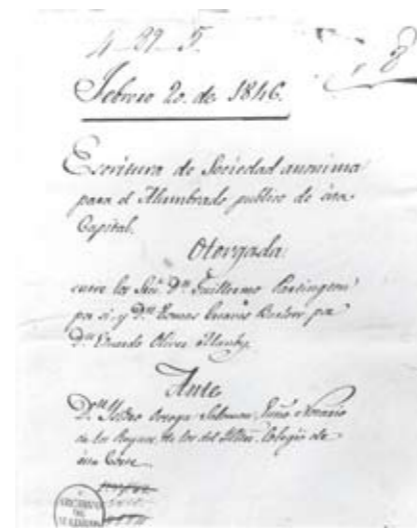 4-89-5
Febrero 20. de 1846.
Escritura de Sociedad anonima
para el Alumbrado publico de esta
Capital.
Otorgada
entre los Sres. Dn. Guillermo Partington
por si, y Dn. Tomas por
Dn. Eduardo Oliver Manby.
Ante
Dn. Ysidro Ortega Salomon, Notario
de los Reynos, de los del Colegio de
esta Corte
ARCHIVO